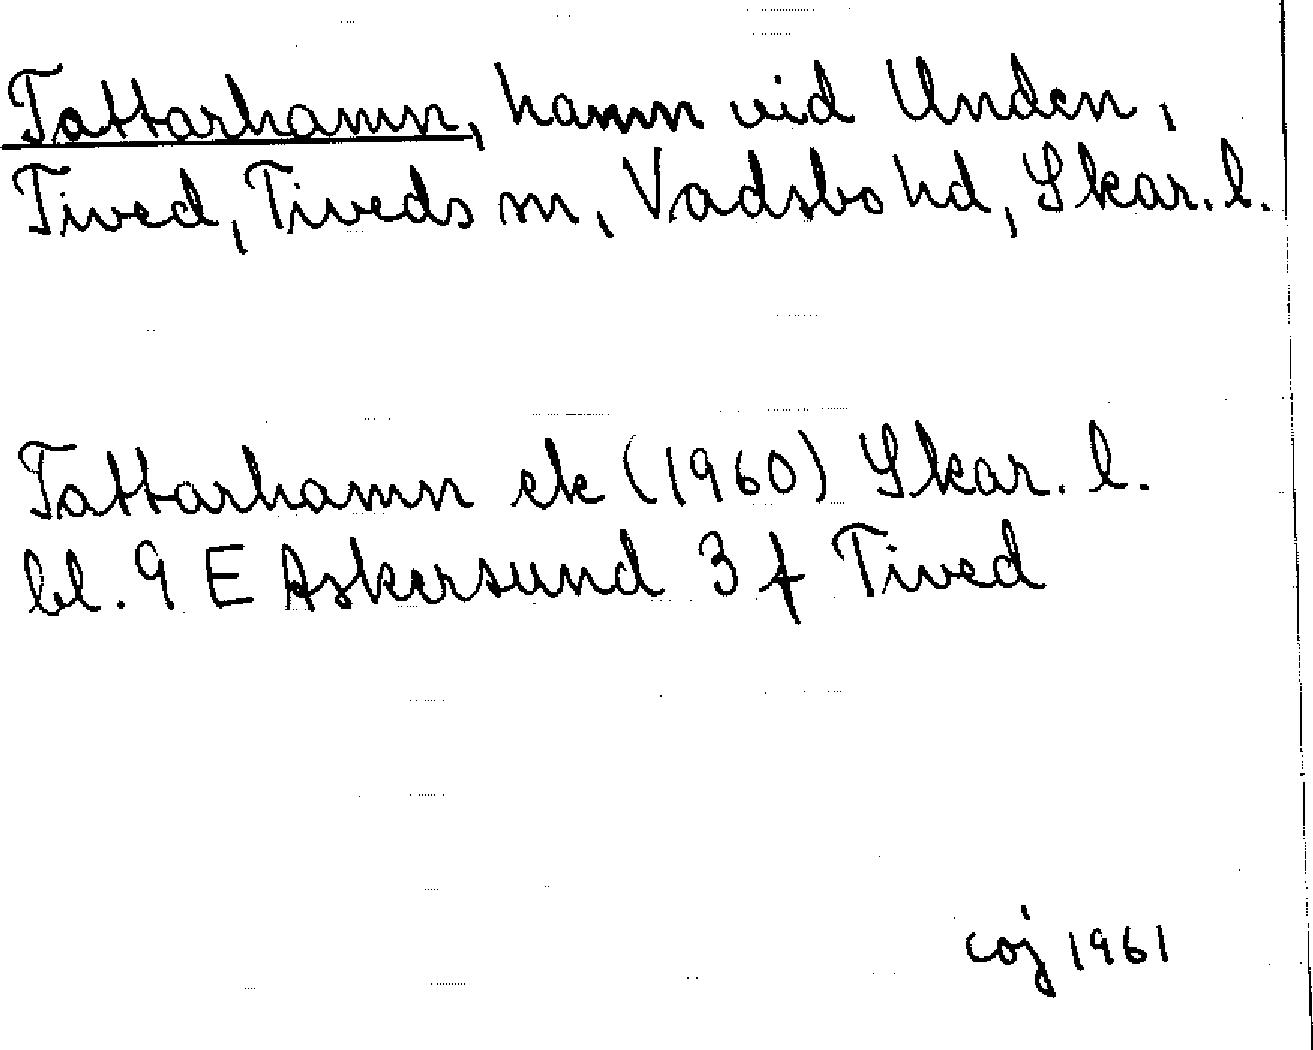 Tattarhamn, hamn vid Unden,
Tived, Tiveds sn, Vadsbo hd, Skar. l.
Tattarhamn ek (1960) Skar. l.
bl. 9 E Askersund 3 f Tived
coj 1961